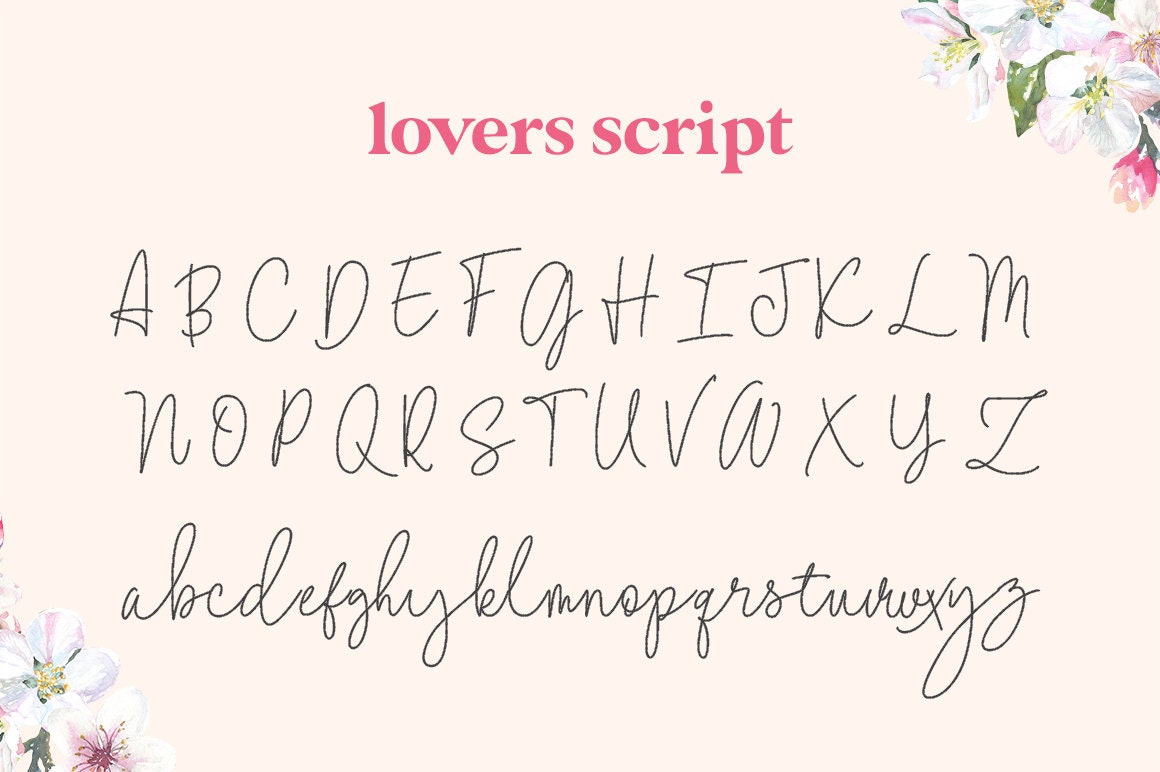 lovers script
A B C D E F G H I J K L M
N O P Q R S T U V W X Y Z
abcdefghijklmnopqrstuvwxyz